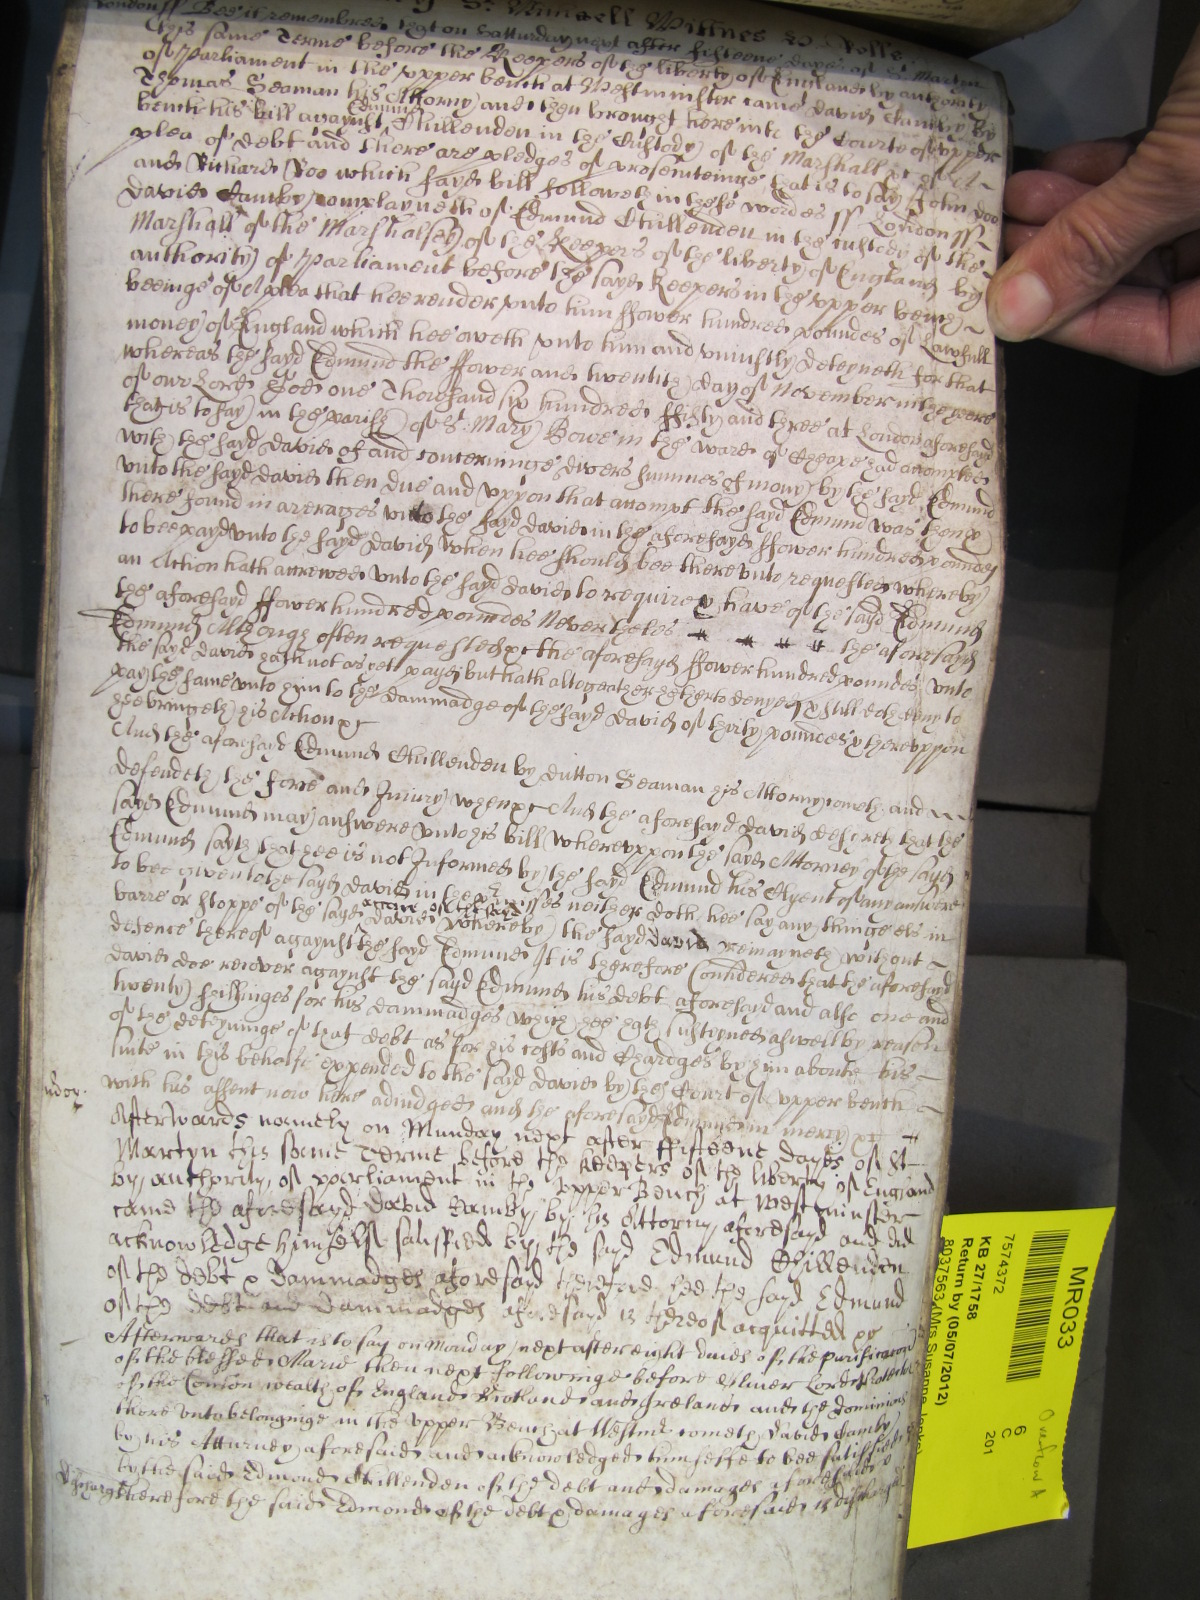 St Michaell Wittnes H: Rolle
London ss Bee it remembred that on Satturday next after fifteene dayes of St Martyn
this same Terme before the Keepers of the liberty of England by authority
of Parliament in the upper bench at Westminster came David Camby by
Thomas Seaman his Attorny and then brought here into the Courte of upper
bench his bill agaynst Edmund Chillenden in the Custody of the Marshall &c of A
plea of debt and there are pledges of prosecuteinge that is to say John Doo
and Richard Roo which sayd bill followeth in these wordes ss London ss
David Camby complayneth of Edmund Chillenden in the custody of the
Marshall of the Marshalsey of the Keepers of the liberty of England by
authority of Parliament before the sayd Keepers in the upper bench
beeinge of A plea that hee render unto him ffower hundred poundes of Lawfull
money of England which hee oweth unto him and uniustly deteyneth for that
whereas the sayd Edmund the ffower and twentith day of November in the yeere
of our Lord God one Thowsand six hundred ffifty and three at London aforesayd
that is to say in the parish of St Mary Bowe in the ward of Cheape had accompted
with the sayd David of and concerninge divers summes of mony by the sayd Edmund
unto the sayd David then due and uppon that accompt the sayd Edmund was then
there found in arerages unto the sayd David in the aforesayd ffower hundred poundes
to bee payd unto the sayd David when hee should bee thereunto requested whereby
an Action hath accrewed unto the sayd David to require & have of the sayd Edmund
the aforesayd ffower hundred poundes Never theles the aforesayd
Edmund Although often requested &c the aforesayd ffower hundred poundes unto
the sayd David hath not as yet payd but hath altogeather hitherto denyed & still doth deny to
pay the same unto him to the dammadge of the sayd David of thirty poundes & thereuppon
hee bringeth his Action &c
And the aforesayd Edmund Chillenden by Dutton Seaman his Attorny cometh and
defendeth the force and Injury when &c And the aforesayd David desireth that the
sayd Edmund may answere unto his bill whereuppon the sayd Attorney of the sayd
Edmund sayth that hee is not Informed by the sayd Edmund his Clyent of any answere
to bee given to the sayd David in the premisses neither doth hee say any thinge els in
barre or stoppe of the sayd accion of the said David whereby the sayd David remayneth without
defence thereof agaynst the sayd Edmund It is therefore Considered that the aforesayd
David doe recover agaynst the sayd Edmund his debt aforesayd and also one and
twenty shillinges for his dammadges which hee hath susteyned aswell by reason
of the deteyninge of that debt as for his costs and Chardges by him aboute his
suite in this behalfe expended to the said David by the Court of upper bench
with his assent now here adiudged and the aforesayd Edmund in mercy &c
Afterwards namely on Munday next after ffifteene dayes of St
Martyn this same Terme before the keepers of the liberty of England
by authority of parliament in the upper Bench at Westminster
came the aforesayd David Camby by his Attorny aforesayd and did
acknowledge himself satisfied by the sayd Edmund Chillenden
of the debt & Dammadges aforesayd therefore lee the sayd Edmund
of the debt and Dammadges aforesayd is thereof acquitted &c
Afterwardes that is to say on Monday next after eight daies of the purificacon
of the blessed Marie then next followinge before Oliver Lord Protector
of the Comon wealth of England Scotland and Ireland and the dominions
there unto belonginge in the upper Bench at Westmr cometh David Camby
by his Atturney aforesaid and acknowledged himselfe to bee satisfied
by the said Edmond Chillenden of the debt and damages aforesaid
Discharg therefore the said Edmond of the debt & damages aforesaid is discharged
MR033
7574372
KB 27/1758
Return by (05/07/2012)
6
C
201
Overflow A